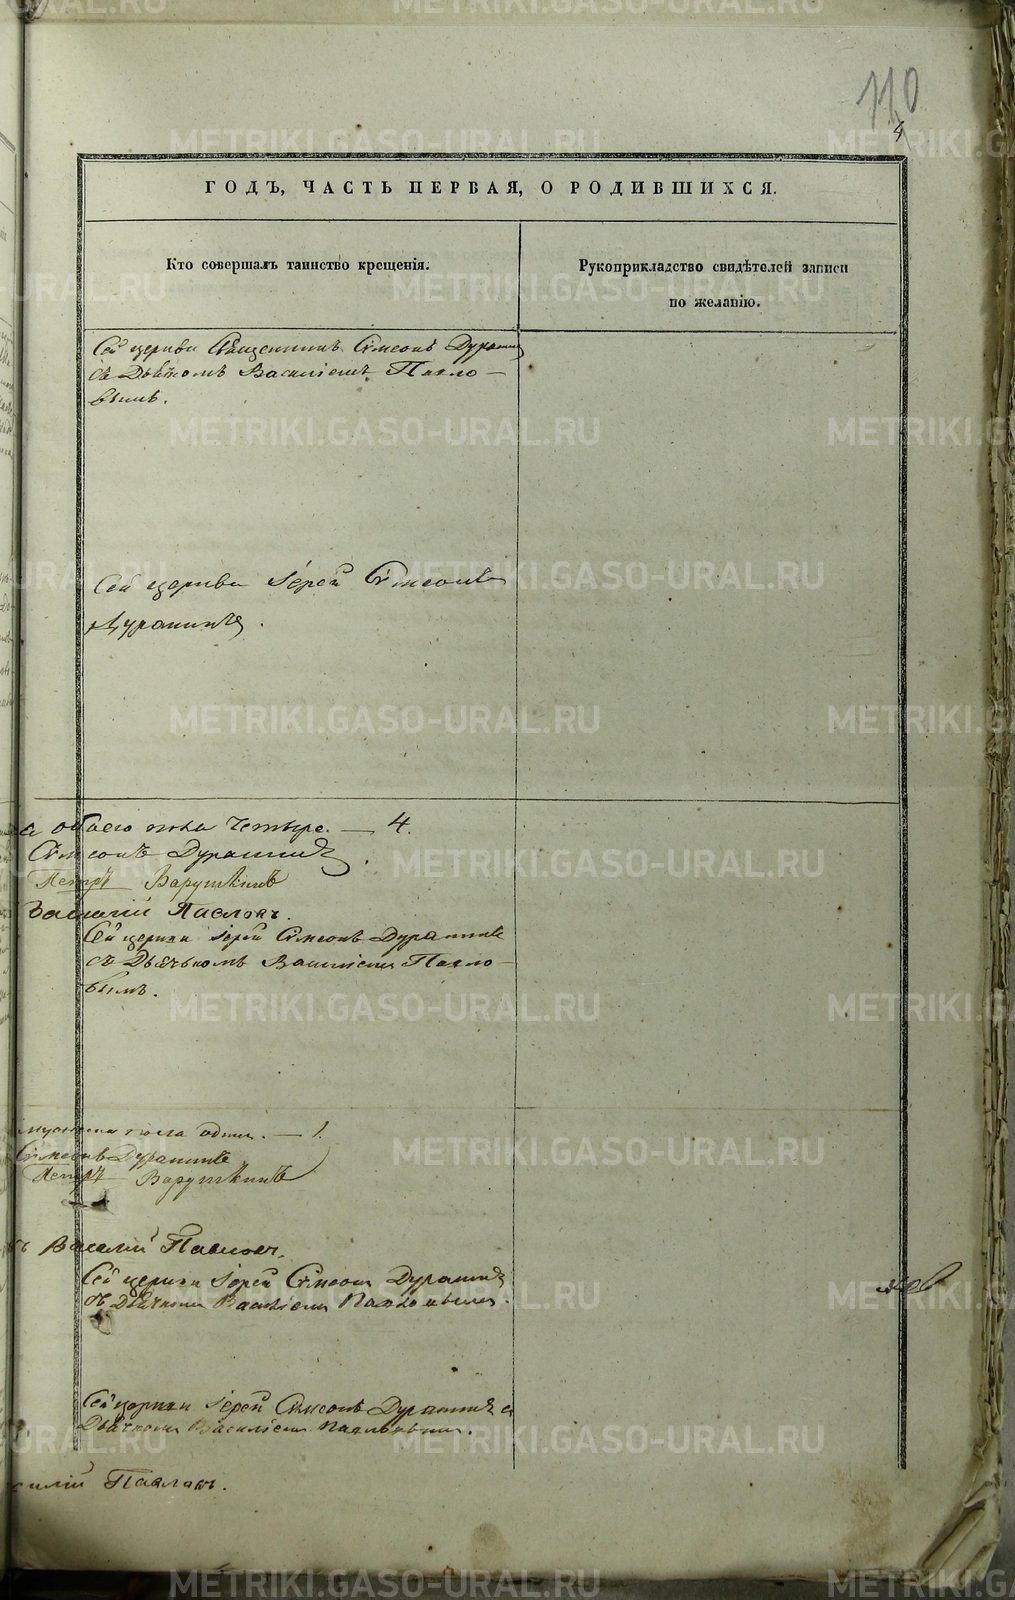 110
4
ГОДЪ, ЧАСТЬ ПЕРВАЯ, О РОДИВШИХСЯ.
Кто совершалъ таинство крещенія.
Рукоприкладство свидѣтелей записи
по желанію.
Сей церкви Священникъ Сѵмеонъ Дурани
съ Дьячкомъ Василіемъ Павло-
вымъ.
Сей церкви Іерей Сѵмеонъ
Дуранинъ.
обоего пола Четыре. — 4.
Сѵмеонъ Дуранинъ.
Петръ Варушкинъ
Василій Павловъ.
Сей церкви Іерей Сѵмеонъ Дуранинъ
съ Дьячькомъ Василіемъ Павло-
вымъ.
мужеска пола одинъ. — 1.
Сѵмеонъ Дуранинъ
Петръ Варушкинъ
Василій Павловъ.
Сей церкви Іерей Сѵмеонъ Дуранинъ
съ Дьячкомъ Василіемъ Павловымъ.
Сей церкви Іерей Сѵмеонъ Дуранинъ съ
Дьячкомъ Василіемъ Павловымъ.
силій Павловъ.
METRIKI.GASO-URAL.RU